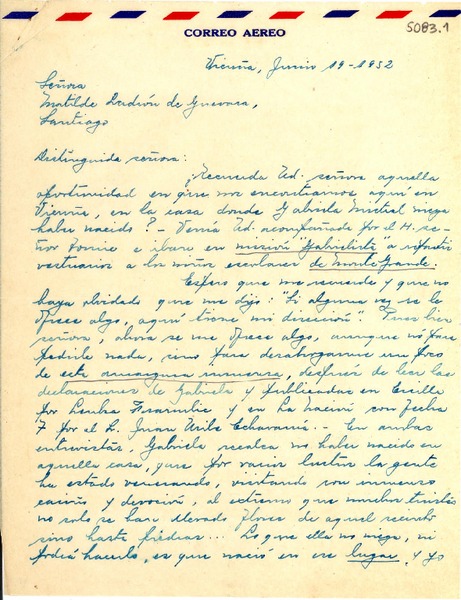 CORREO AEREO
5083.1
Vicuña, Junio 19-1952
Señora
Matilde Ladrón de Guevara,
Santiago
Distinguida señora:
¿Recuerda Ud. señora aquella
oportunidad en que nos encontramos aquí en
Vicuña, en la casa donde Gabriela Mistral niega
haber nacido? - Venía Ud. acompañada por el H. se-
ñor y iban en misión "Gabrielista" a repartir
vestuarios a los niños escolares de Monte Grande.
Espero que me recuerde y que no
haya olvidado que me dijo: "Si alguna vez se le
ofrece algo, aquí tiene mi dirección". Pues bien
señora, ahora se me ofrece algo, aunque no para
pedirle nada, sino para desahogarme un poco
de esta amargura inmensa, después de leer las
declaraciones de Gabriela y publicadas en Ercilla
por Lenka Franulic y en La Nación con fecha
7 por el L. Juan Uribe Echavarría. - En ambas
entrevistas, Gabriela recalca no haber nacido en
aquella casa, que por varios lustros la gente
ha estado venerando, visitando con inmenso
cariño y devoción, al extremo que muchos turistas
no solo se han llevado flores de aquel recinto
sino hasta piedras... Lo que ella no niega, ni
podrá hacerlo, es que nació en ese lugar, y yo